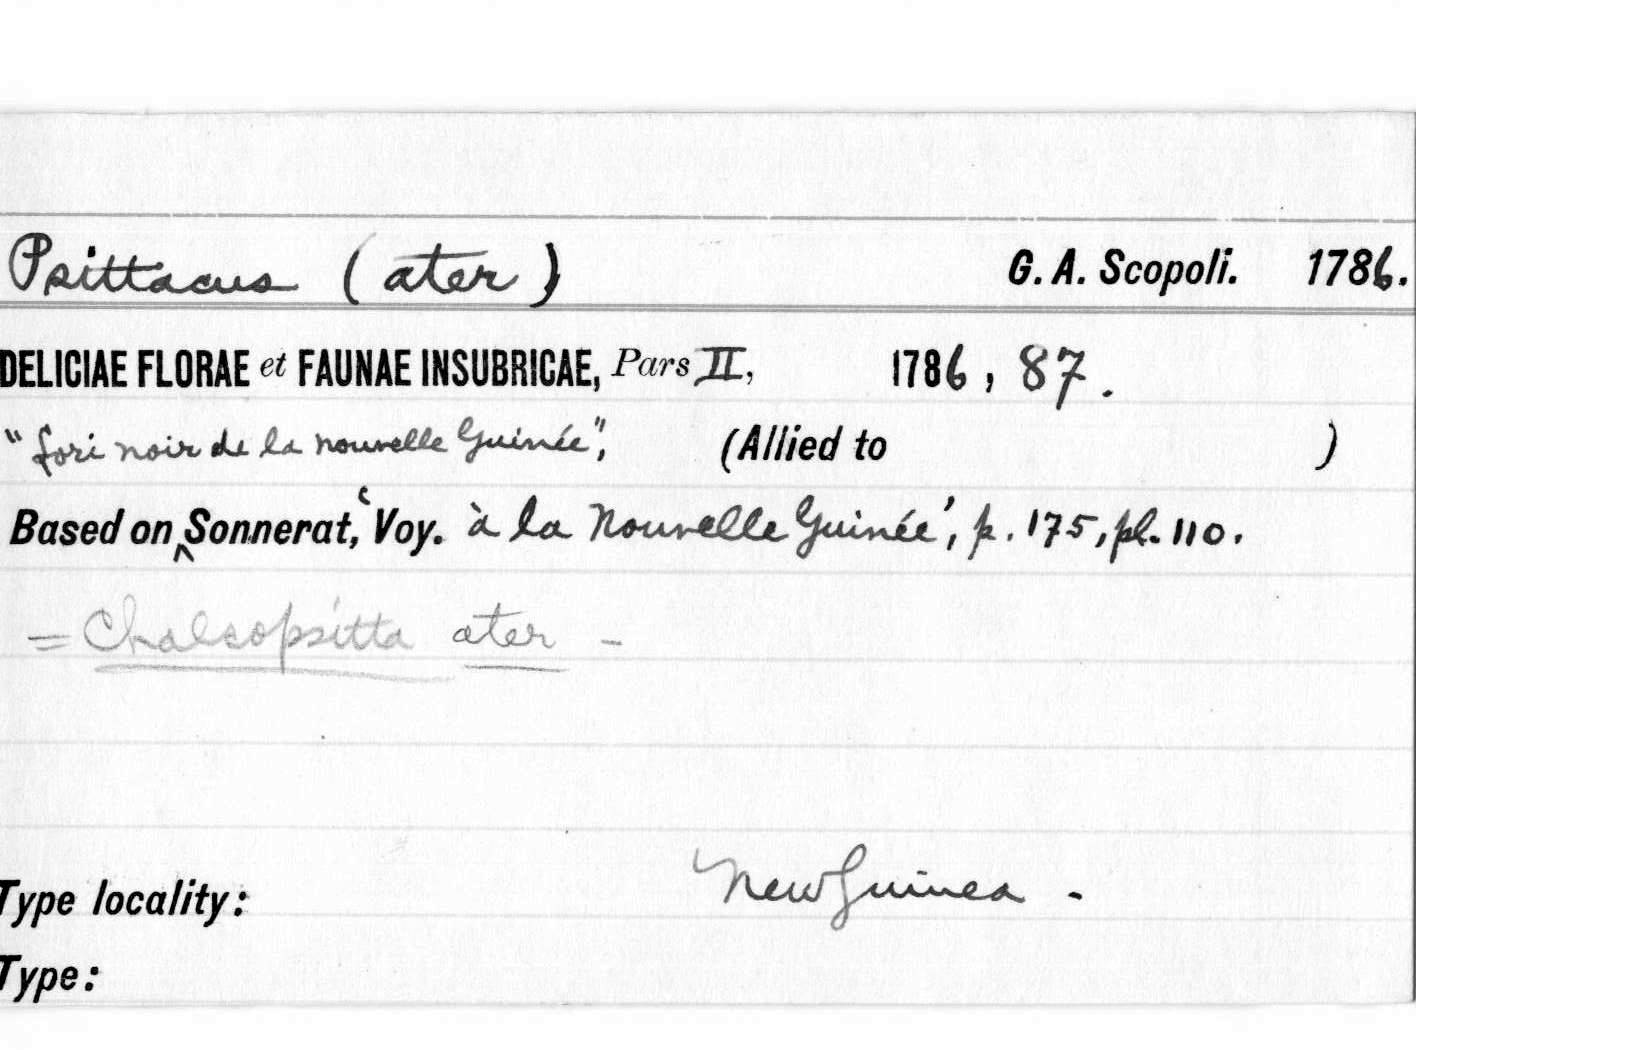 Psittacus (ater) G. A. Scopoli. 1786.
DELICIAE FLORAE et FAUNAE INSUBRICAE, Pars II, 1786, 87.
"Lori noir de la nouvelle Guinée", (Allied to )
Based on ‸ Sonnerat, ‘Voy. à la Nouvelle Guinée’, p. 175, pl. 110.
= Chalcopsitta ater -
Type locality: New Guinea -
Type: